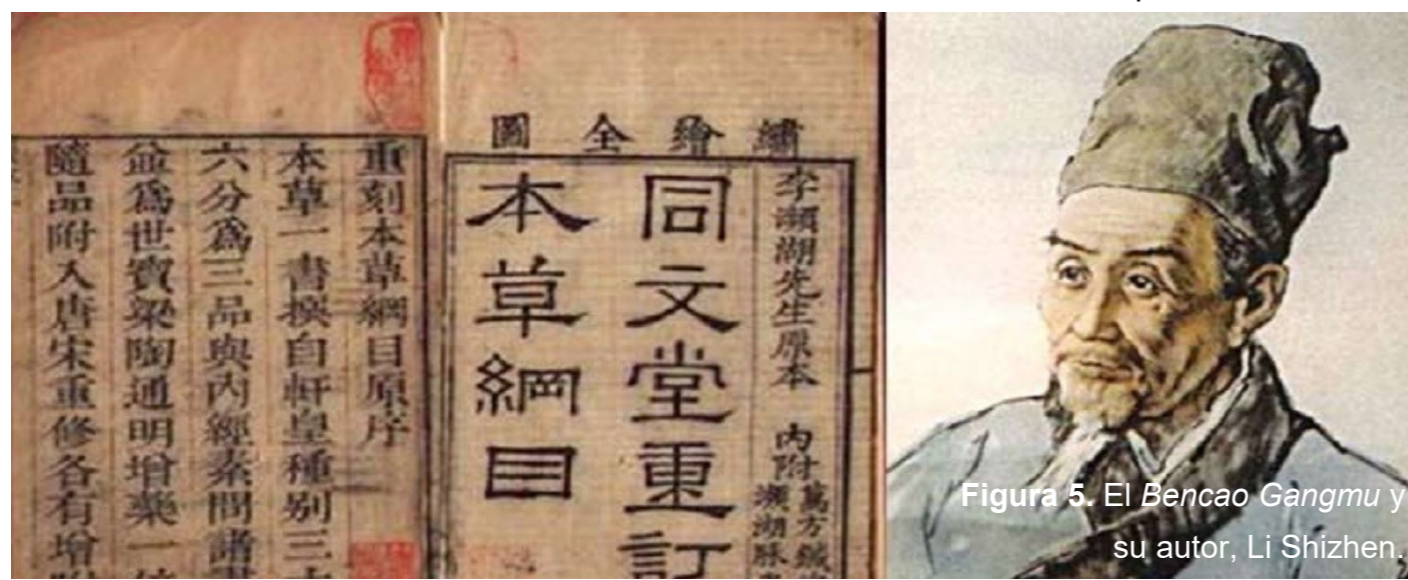 繡繪全圖
李瀕湖先生原本 內附
萬方鍼
瀕湖脈
同文堂重訂
本草綱目
重刻本草綱目原序
本草一書撰自軒皇種别三
六分爲三品與內經素問諸
益爲世寶梁陶通明增藥一
隨品附入唐宋重修各有增
Figura 5. El Bencao Gangmu y
su autor, Li Shizhen.